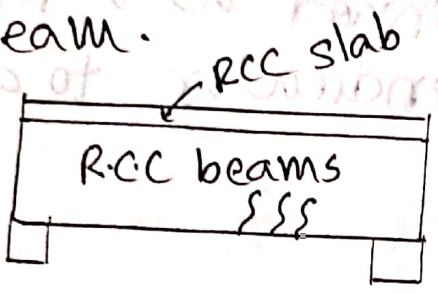 eam.
RCC slab
R.C.C beams